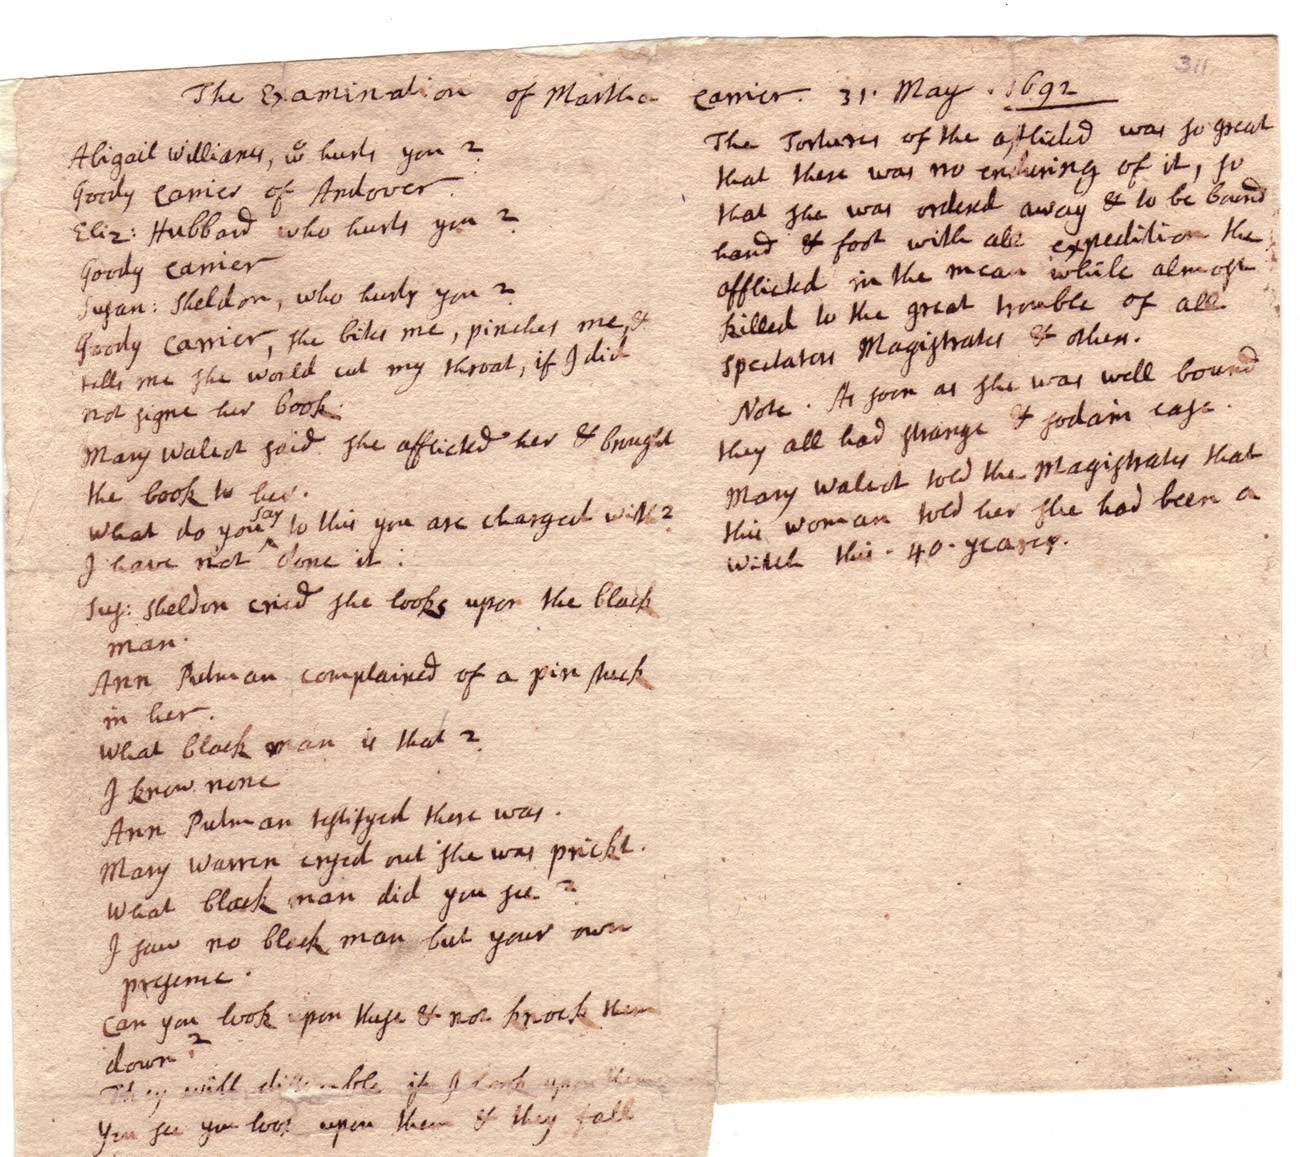 311
The Examination of Martha Carrier. 31. May. 1692
Abigail Williams, wo hurts you?
Goody Carrier of Andover.
Eliz: Hubbard who hurts you?
Goody Carrier
Susan: Sheldon, who hurts you?
Goody Carrier, she bites me, pinches me, &
tells me she would cut my throat, if I did
not signe her book.
Mary Walcot said she afflicted her & brought
the book to her.
What do you say to this you are charged with?
I have not done it:
Sus: Sheldon cried she looks upon the black
man.
Ann Putman complained of a pin stuck
in her.
What black man is that?
I know none
Ann Putman testifyed there was.
Mary Warren cryed out she was prickt.
What black man did you see?
I saw no black man but your own
presence.
Can you look upon these & not knock them
down?
They will dissemble if I look upon them
You see you look upon them & they fall
The Tortures of the afflicted was so great
that there was no enduring of it, so
that she was ordered away & to be bound
hand & foot with all expedition the
afflicted in the mean while almost
killed to the great trouble of all
Spectators Magistrates & others.
Note. As soon as she was well bound
they all had strange & sodain ease.
Mary Walcot told the Magistrates that
this woman told her she had been a
witch this. 40. yeares.